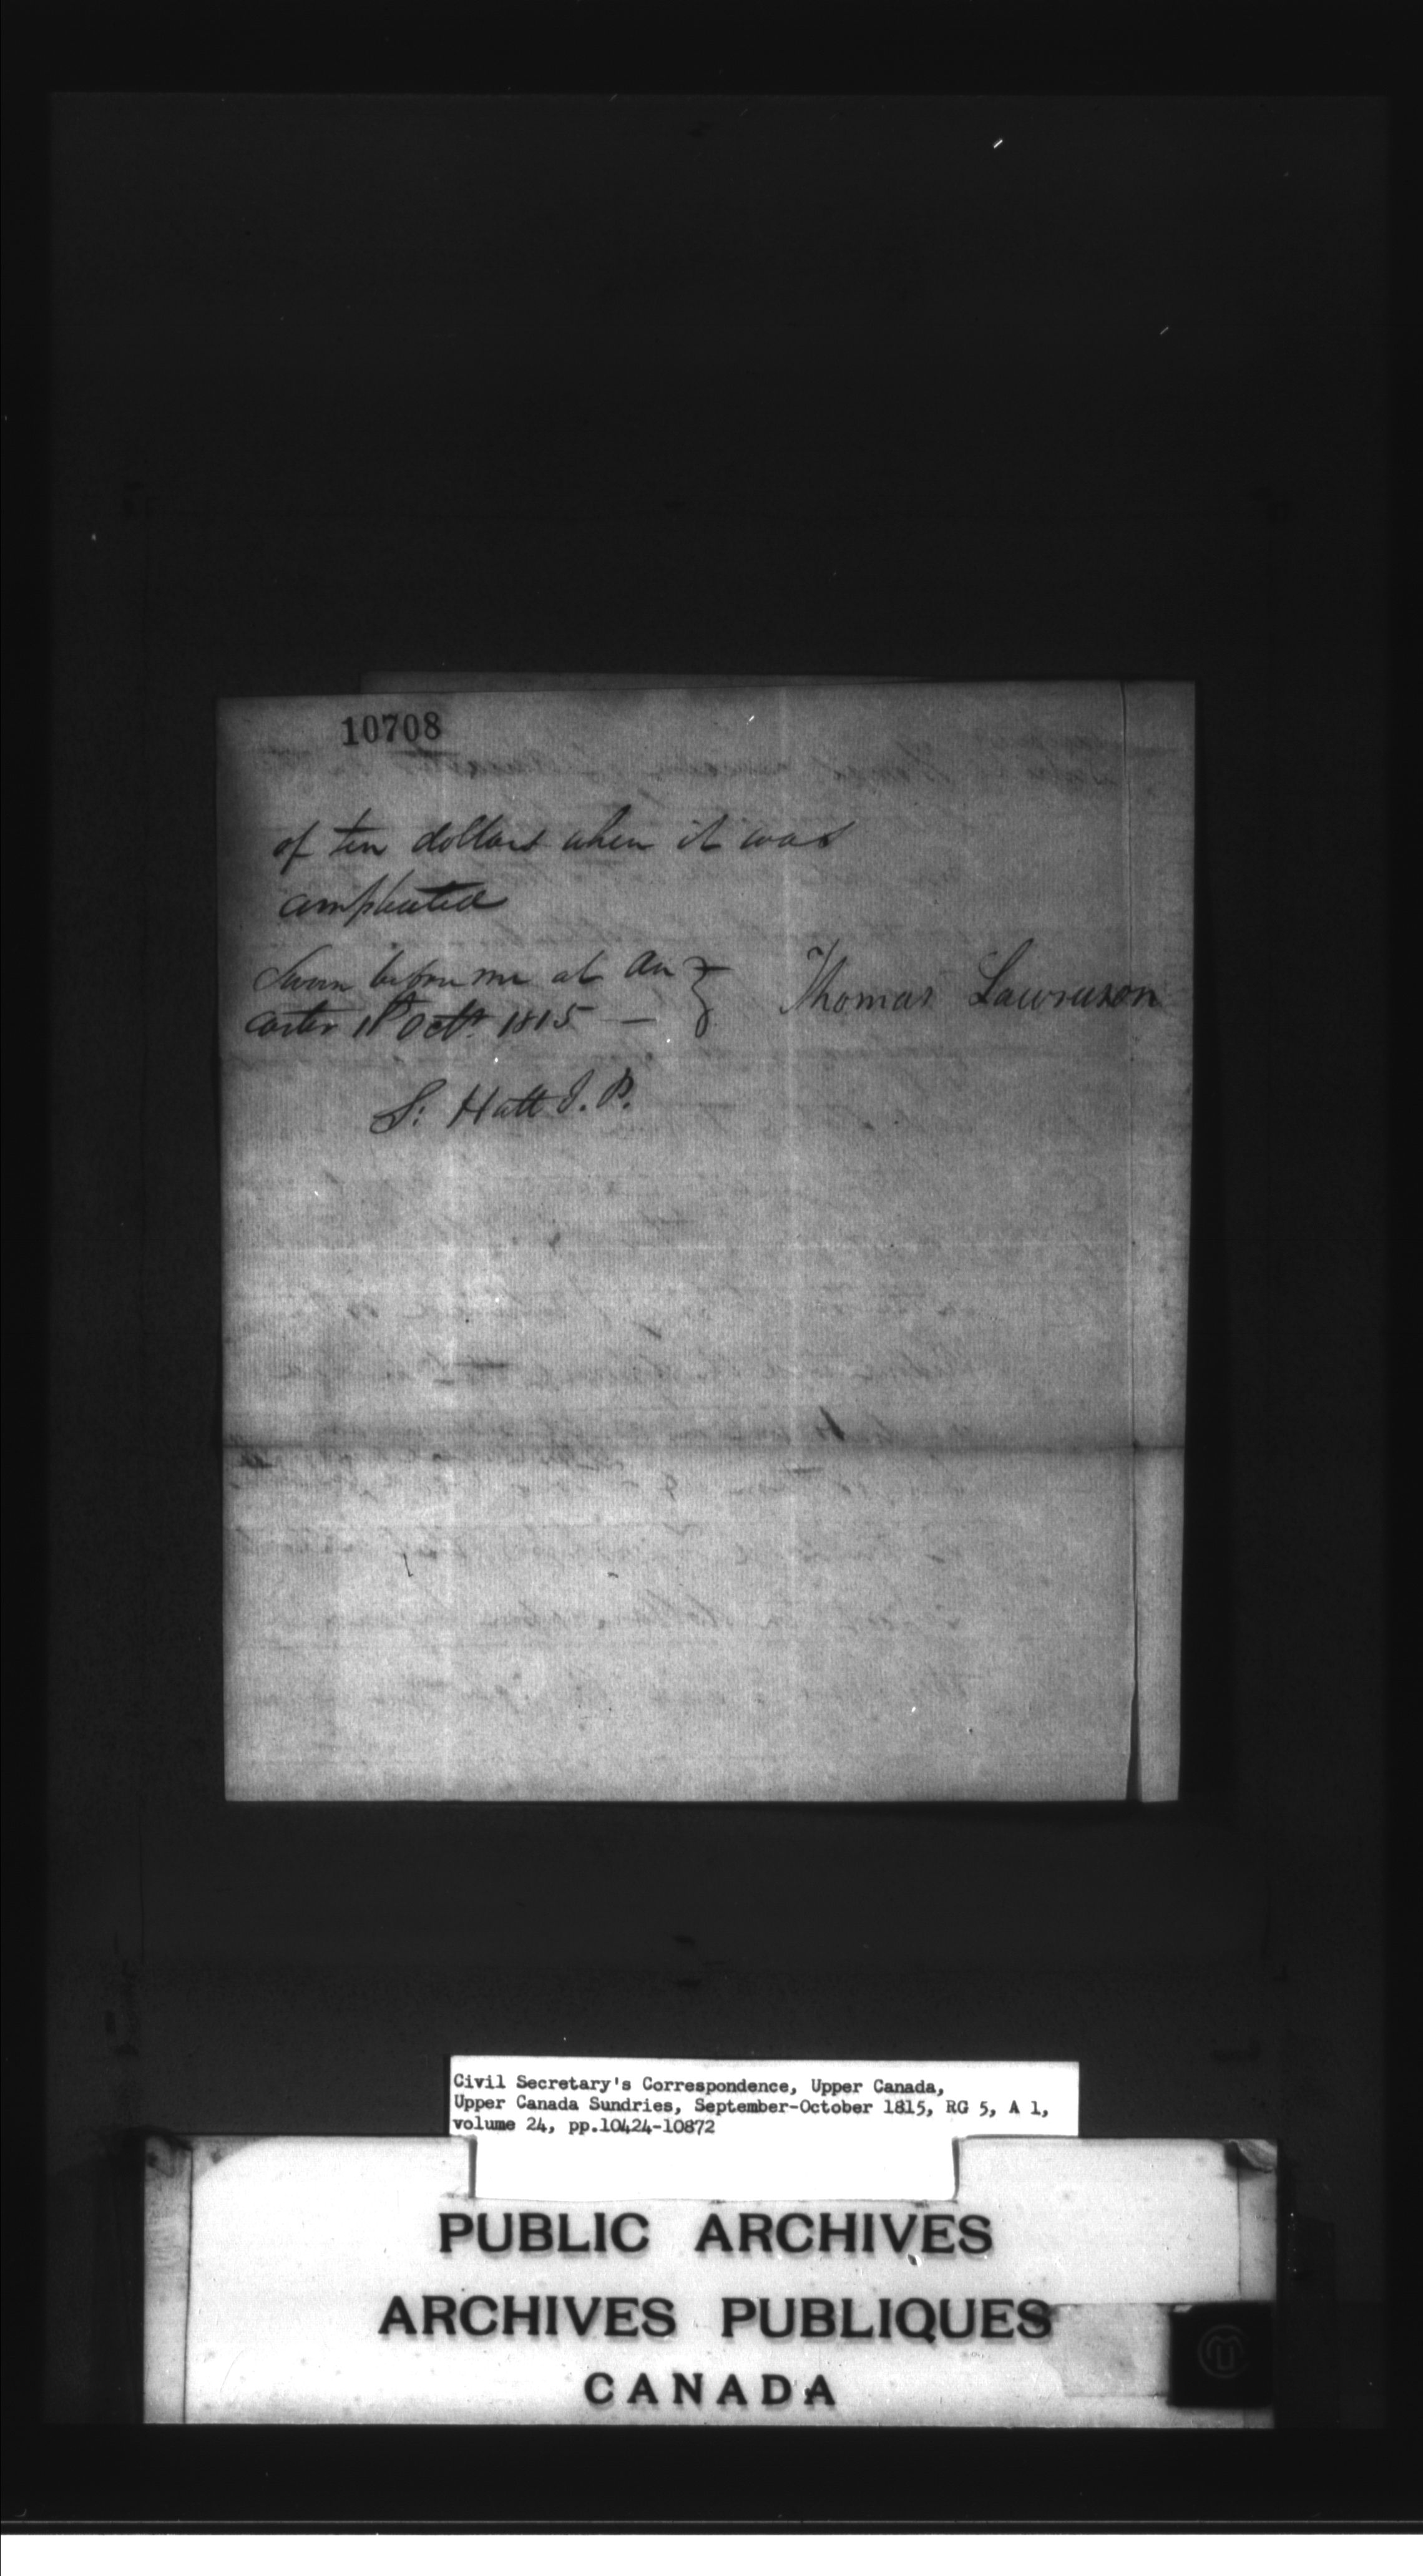 10708
of ten dollars when it was
compleated
Sworn before me at An
caster 1st Octr 1815 —
Thomas Lawrason
S: Hatt J. P.
Civil Secretary's Correspondence, Upper Canada,
Upper Canada Sundries, September-October 1815, RG 5, A 1,
volume 24, pp.10424-10872
PUBLIC ARCHIVES
ARCHIVES PUBLIQUES
CANADA